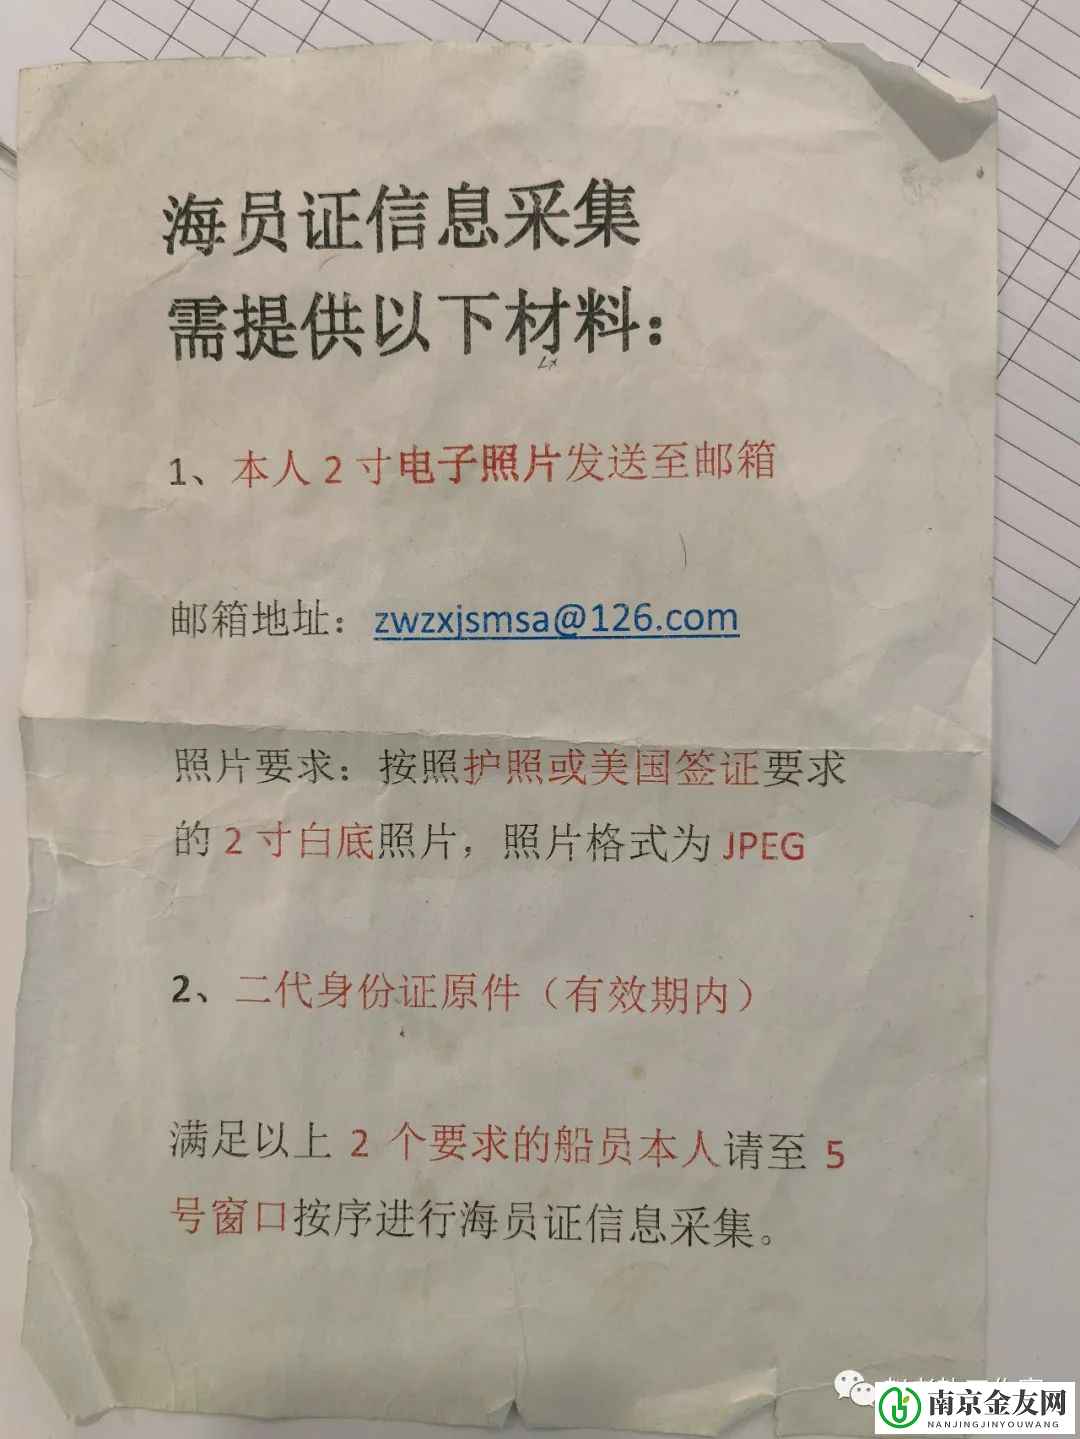 海员证信息采集
需提供以下材料：
1、本人2寸电子照片发送至邮箱
邮箱地址：zwzxjsmsa@126.com
照片要求：按照护照或美国签证要求
的2寸白底照片，照片格式为JPEG
2、二代身份证原件（有效期内）
满足以上 2 个要求的船员本人请至 5
号窗口按序进行海员证信息采集。
南京金友网
NANJINGJINYOUWANG